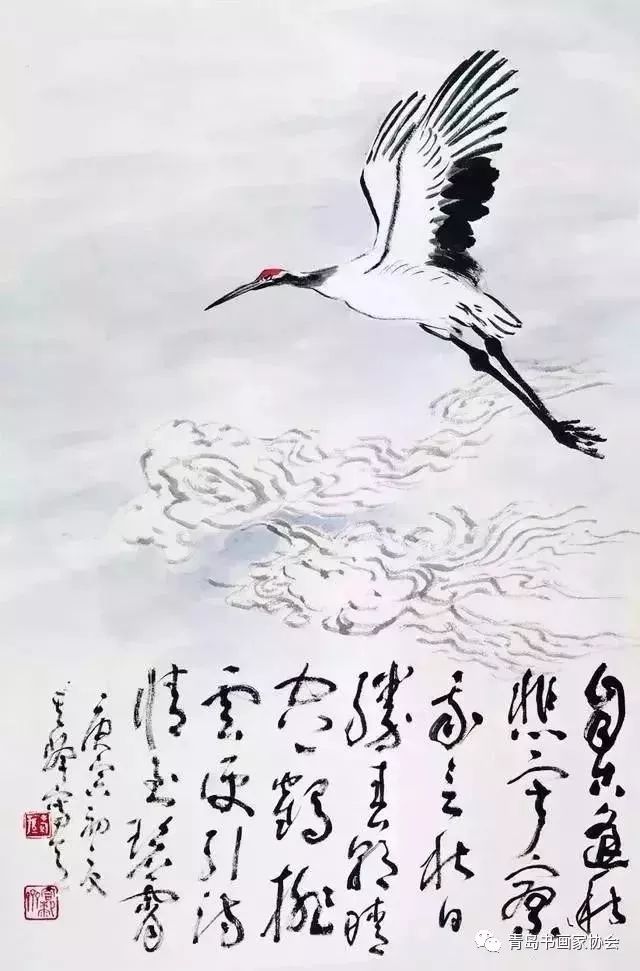 自古逢秋
悲寂寥
我言秋日
勝春朝晴
空一鶴排
雲便引詩
情到碧霄
庚寅初夏
其峰寫
青岛书画家协会